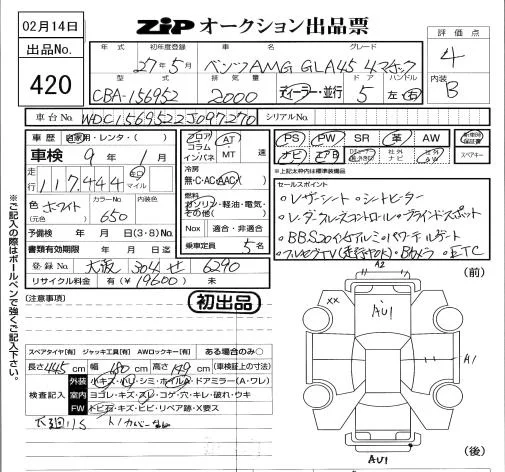 02月14日
ZIP オークション出品票
出品No.
420
年式 初年度登録 車名 グレード
27年5月 ベンツAMG GLA45 4マチック
型式 排気量 ドア ハンドル
CBA-156952 2000 ディーラー・並行 5 左・右
評価点
4
内装
B
車台No. WDC1569522J097270 シリアルNo.
車歴 自家用・レンタ・( )
車検 9年 1月
走行 117,444 km マイル
色 ホワイト (元色) カラーNo. 650 内装色
予備検 年 月 日(3・8)No.
書類有効期限 年 月 日迄
登録No. 大阪 304 せ 6290
リサイクル料金 有(¥19600) 未
フロア コラム インパネ AT・MT 速
冷房 無・C・AC・AAC
燃料 ガソリン・軽油・電気・その他( )
Nox 適合・非適合
乗車定員 5名
PS PW SR 革 AW
ナビ エアB 社外ナビ 社外AW
新車時保証書
スペアキー
*上記太枠内は標準装備品
セールスポイント
・レザーシート・シートヒーター
・レーダークルーズコントロール・ブラインドスポット
・BBS20インチアルミ・パワーテールゲート
・フルセグTV(走行中OK)・Bカメラ・ETC
ご記入の際はボールペンで強くご記入下さい。
初出品
(注意事項)
スペアタイヤ[有] ジャッキ工具[有] AWロックキー[有] ある場合のみ○
長さ 445cm 幅 180cm 高さ 149cm (車検証上の寸法)
検査記入
外装 小キズ・小凹・シミ・ホイルA・ドアミラー(A・ワレ)
室内 ヨゴレ・キズ・スレ・コゲ・穴・キレ・破れ・ウキ
FW トビ石・キズ・ヒビ・リペア跡・X要ス
(前)
A2
XX
AU1
A1
AU1
(後)